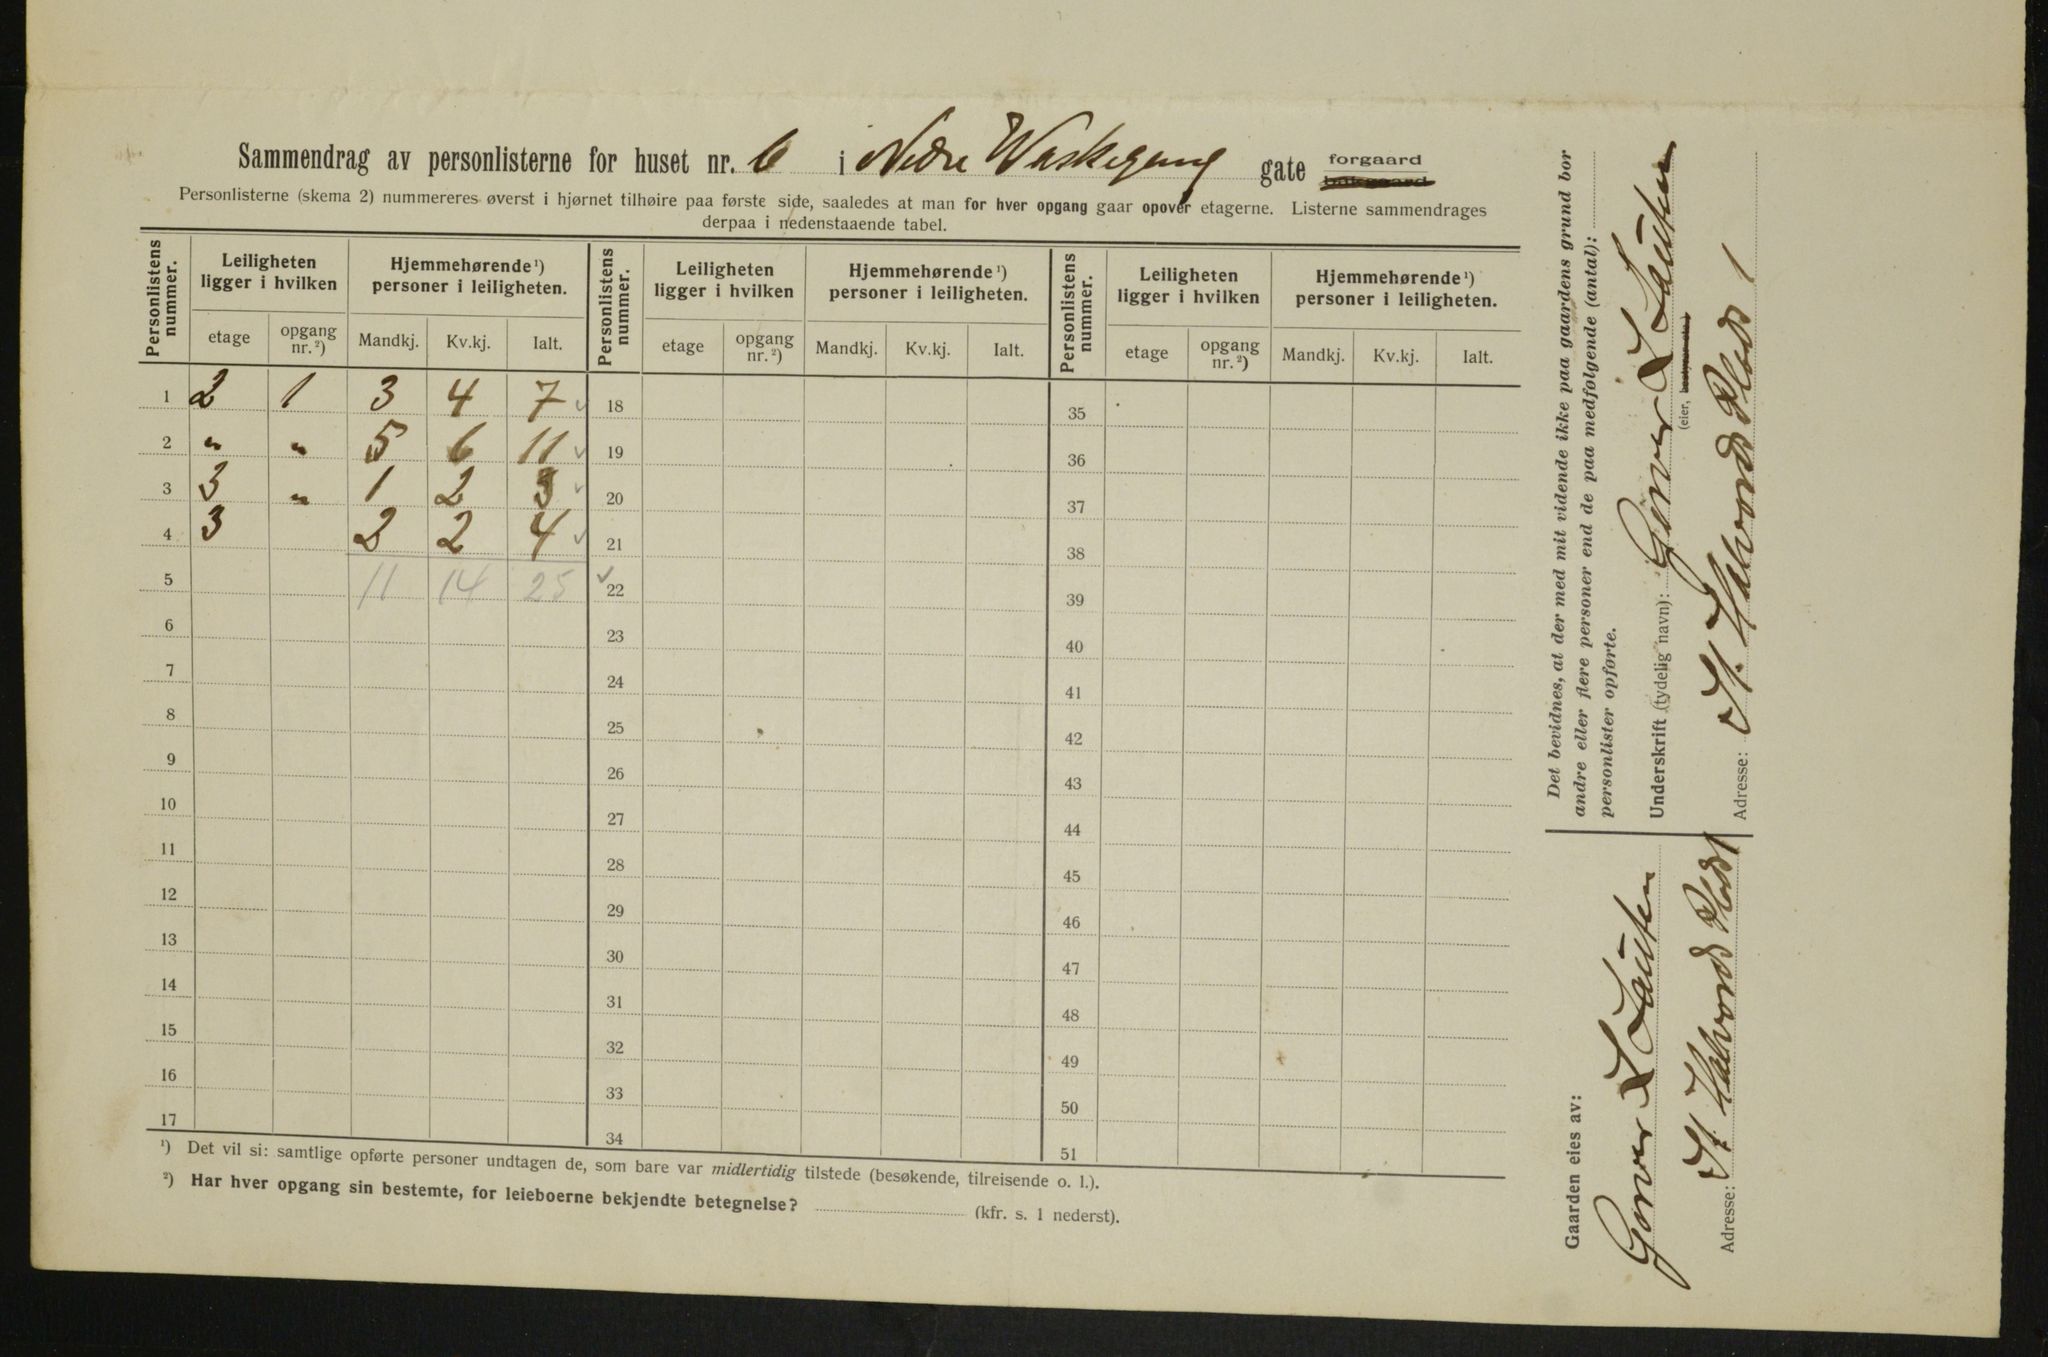 Sammendrag av personlisterne for huset nr. 6 i Nedre Waskegang gate forgaard bakgaard
Personlisterne (skema 2) nummereres øverst i hjørnet tilhøire paa første side, saaledes at man for hver opgang gaar opover etagerne. Listerne sammendrages
derpaa i nedenstaaende tabel.
Personlistens nummer. Leiligheten ligger i hvilken Hjemmehørende¹) personer i leiligheten. Personlistens nummer. Leiligheten ligger i hvilken Hjemmehørende¹) personer i leiligheten. Personlistens nummer. Leiligheten ligger i hvilken Hjemmehørende¹) personer i leiligheten.
etage opgang nr.²) Mandkj. Kv.kj. Ialt. etage opgang nr.²) Mandkj. Kv.kj. Ialt. etage opgang nr.²) Mandkj. Kv.kj. Ialt.
1 2 1 3 4 7 ✓ 18 35
2 " " 5 6 11 ✓ 19 36
3 3 " 1 2 3 ✓ 20 37
4 3 2 2 4 ✓ 21 38
5 11 14 25 ✓ 22 39
6 23 40
7 24 41
8 25 42
9 26 43
10 27 44
11 28 45
12 29 46
13 30 47
14 31 48
15 32 49
16 33 50
17 34 51
¹) Det vil si: samtlige opførte personer undtagen de, som bare var midlertidig tilstede (besøkende, tilreisende o. l.).
²) Har hver opgang sin bestemte, for leieboerne bekjendte betegnelse? (kfr. s. 1 nederst).
Det bevidnes, at der med mit vidende ikke paa gaardens grund bor
andre eller flere personer end de paa medfølgende (antal):
personlister opførte.
Underskrift (tydelig navn):
(eier, bestyrer etc.)
Adresse: St. Halvards Plads 1
Gaarden eies av:
Adresse: St. Halvards Plads 1